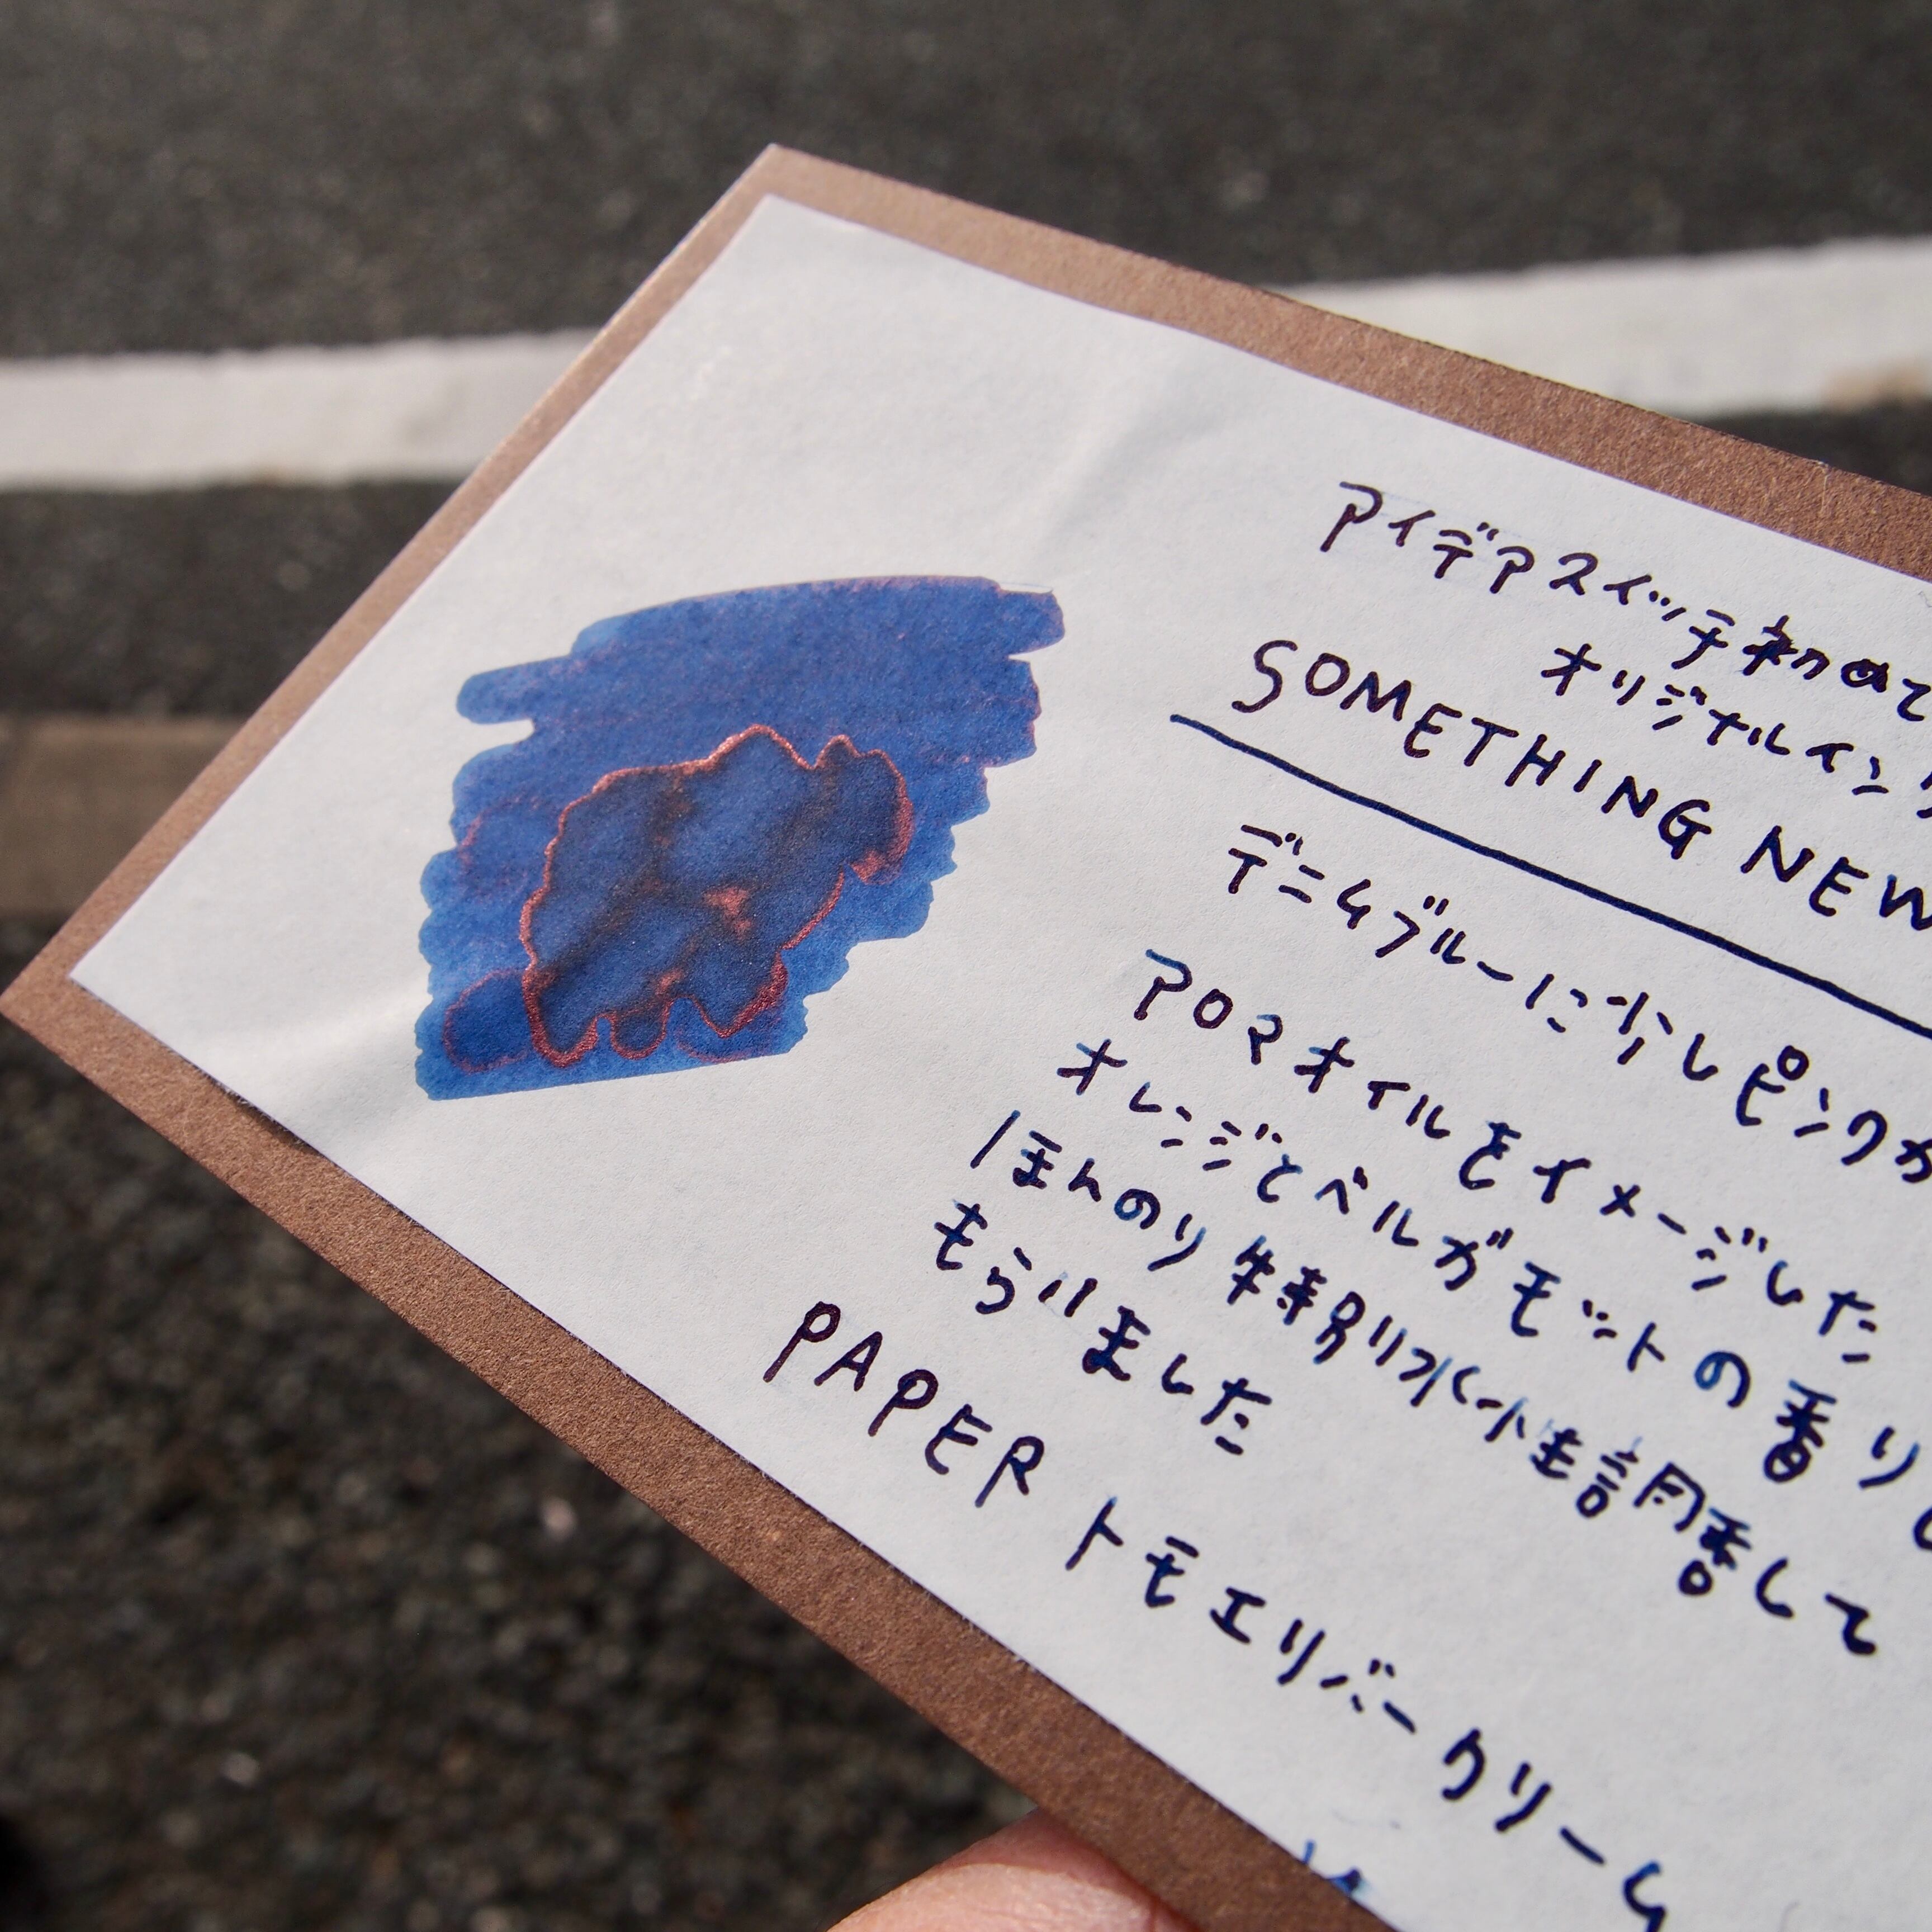 アイデアスイッチ初めて
オリジナルイン
SOMETHING NEW
デニムブルーに少しピンクが
アロマオイルをイメージした
オレンジとベルガモットの香り
ほんのり特別水性調香して
もらいました
PAPER トモエリバークリーム